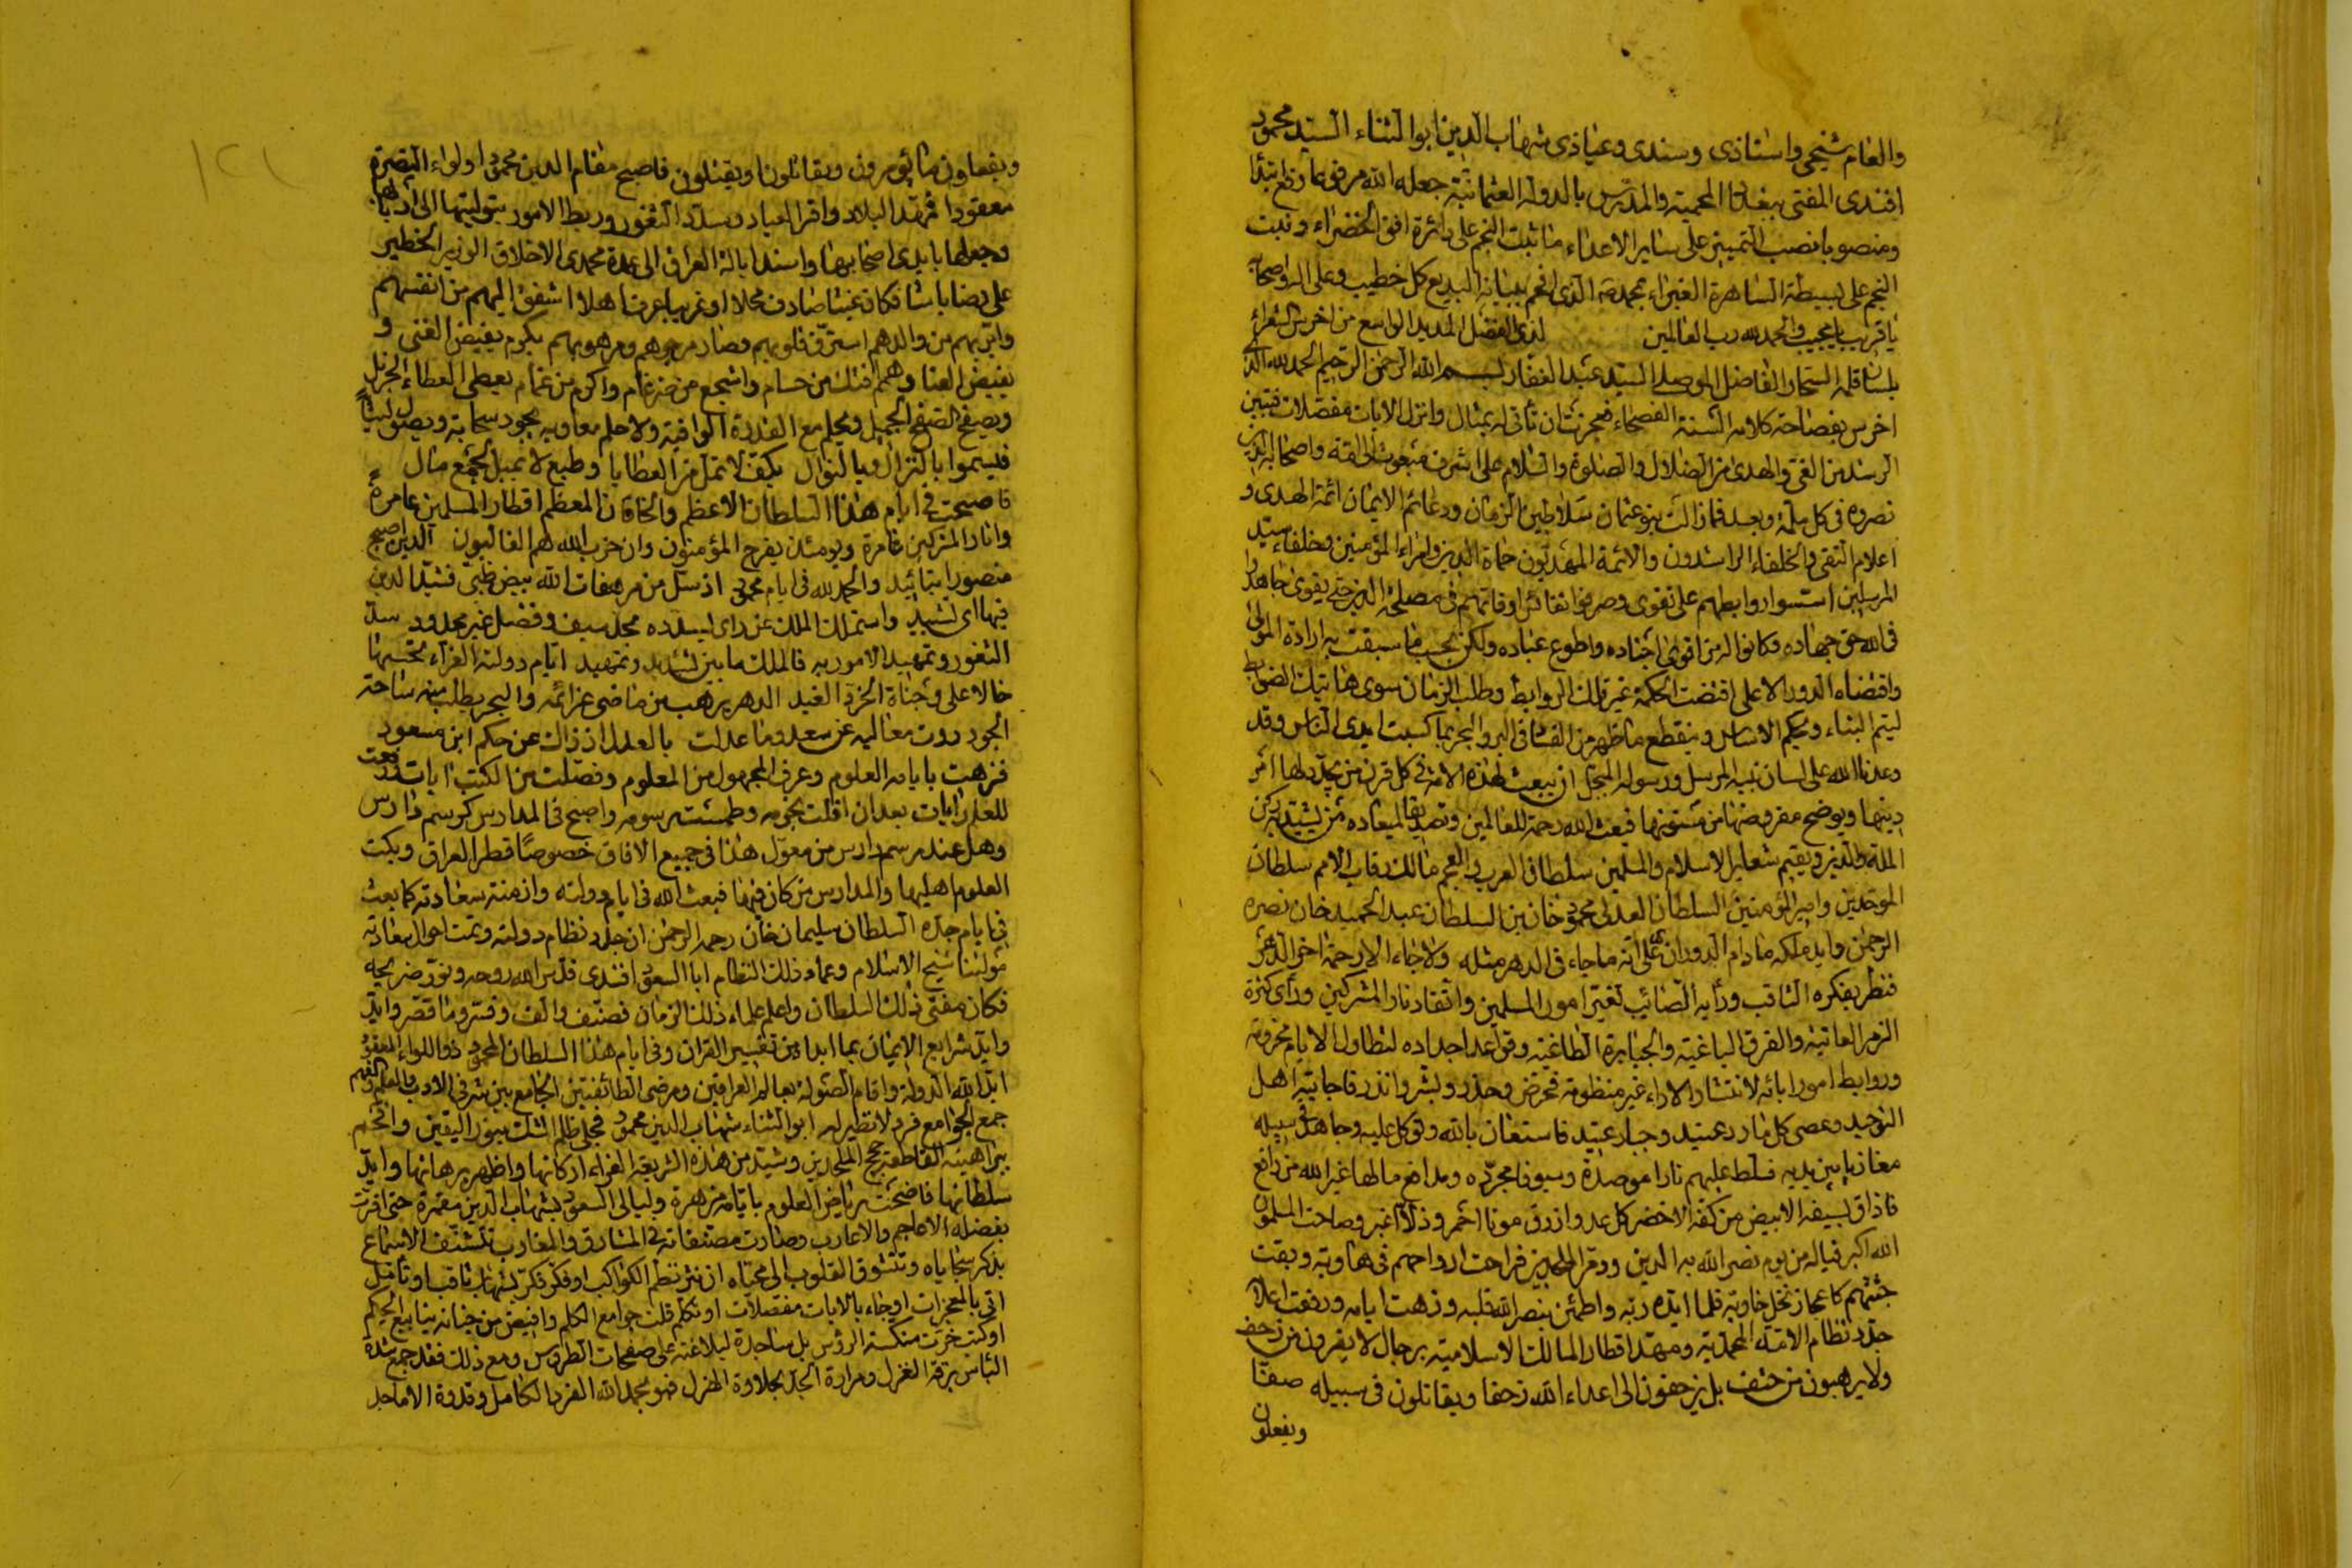 والعام شيخي واستاذي وسندي وعياذي شهاب الدين ابو الثناء السيد محمود
افندي المفتي ببغداد المحمية والمدرس بالدولة العثمانية جعله الله مرفوعا
ومنصوبا نصب التمييز على ساير الاعداء ما ثبت النجم على دائرة افق الخضراء ونبت
النجم على بسيطة الساهرة الغبراء بمحمد الذي افحم ببيانه البديع كل خطيب وعلى اله واصحابه
يا قريب يا مجيب والحمد لله رب العالمين لذي الفضل المديد الواسع من اخرس الشعراء
بلسان قلمه السحار الفاضل الموصلي السيد عبد الغفار بسم الله الرحمن الرحيم الحمد لله الذي
اخرس بفصاحة كلامه السنة الفصحاء فعجزت ان تأتي له بمثال وانزل الايات مفصلات فتبين
الرشد من الغي والهدى من الضلال والصلوة والسلام على اشرف مبعوث لخلقه واصحابه الذين
نصروه في كل ملمة وبعد فما زالت بنو عثمان سلاطين الزمان ودعائم الايمان ائمة الهدى و
اعلام التقى والخلفاء الراشدون والائمة المهديون حماة الدين وامراء المؤمنين وخلفاء سيد
المرسلين اسسوا روابطهم على تقوى وصرفوا نفائس اوقاتهم في مصلحة الدين حتى يقوى جاهدوا
في الله حق جهاده فكانوا له من اقوى اجناده واطوع عباده ولكن بحسب ما سبقت به ارادة المولى
واقتضاه الدور الاعلى اقتضت الحكمة غير تلك الروابط وطلب الزمان سوى هاتيك الضوابط
ليتم البناء ويحكم الاساس وينقطع ما ظهر من الفساد في البر والبحر بما كسبت ايدي الناس وقد
وعدنا الله على لسان نبيه المرسل ورسوله المبجل ان يبعث لهذه الامة في كل قرن من يجدد لها امر
دينها ويوضح مفروضها من مسنونها فبعث الله رحمة للعالمين وتصديقا لميعاده من يشيد ركن
الملة والدين ويقيم شعاير الاسلام والمسلمين سلطان العرب والعجم مالك رقاب الامم سلطان
الموحدين وامير المؤمنين السلطان العدلي محمود خان بن السلطان عبد الحميد خان نصره
الرحمن وايد ملكه ما دام الدوران على انه ما جاء في الدهر مثله ولا جاء الا رحمة اخر الدهر
فنظر بفكره الثاقب ورأيه الصائب تغير امور المسلمين واتقاد نار المشركين ورأى كثرة
الزمر العاتية والفرق الباغية والجبابرة الطاغية وقواعد اجداده لتطاول الايام مخرومة
وروابط امور ابائه لانتشار الاراء غير منظومة فحرض وحذر وبشر وانذر فاجابته اهل
التوحيد وعصى كل مارد عنيد وجبار عتيد فاستعان بالله وتوكل عليه وجاهد في سبيله
مغازيا بين يديه فسلط عليهم نارا موصدة وسيوفا مجردة ومدافع ما لها غير الله من دافع
فاذاق بسيفه الابيض من كفه الاخضر كل عدو ازرق موتا احمر وذلا اغبر وصاحت المسلمون
الله اكبر فياله من يوم نصر الله به الدين ودمر الملحدين فراحت ارواحهم في هاوية وبقيت
جثثهم كاعجاز نخل خاوية فلما ايده ربه واطمئن بنصر الله قلبه وزهت ايامه ورفعت اعلامه
جدد نظام الامة المحمدية ومهد اقطار الممالك الاسلامية برجال لا يفرون من زحف
ولا يرهبون من حتف بل يزحفون الى اعداء الله زحفا ويقاتلون في سبيله صفا
ويفعلون
ويفعلون ما يؤمرون ويقاتلون او يقتلون فاصبح مقام الدين محمودا ولواء النصرة
معقودا فمهد البلاد واقر العباد وسدد الثغور وربط الامور بتوليتها الى اربابها
وجعلها بايدي اصحابها واسند ايالة العراق الى عهدة محمدي الاخلاق الوزير الخطير
علي رضا باشا فكان غيثا صادف محلا او غريبا عرف اهلا اشفق اليهم من انفسهم
وابر بهم من والدهم استرق قلوبهم فصار مرجوهم ومرهوبهم بكرم يفيض الغنى و
يغيض العنا وهمم افتك من حسام واشجع من ضرغام واكرم من غمام يعطي العطاء الجزيل
ويصفح الصفح الجميل ويحلم مع القدرة الوافية ولا حلم معاوية يجود سحابة ويصول ليثا
فيسموا بالنزال وبالنوال بكف لا تمل من العطايا وطبع لا يميل لجمع مال
فاصبحت في ايام هذا السلطان الاعظم والخاقان المعظم اقطار المسلمين عامرة
واثار المشركين غامرة ويومئذ يفرح المؤمنون وان حزب الله هم الغالبون الدين اصبح
منصورا بتائيد والحمد لله في ايام محمود اذ سل من مرهفات الله بيض ظبي فشيد الدين
فيها اي تشييد واستملك الملك عن راي يسدده محد سيف وفضل غير محدود سد
الثغور وتمهيد الامور به فالملك ما بين تشديد وتمهيد ايام دولته الغراء تحسبها
خالا على وجناة الخرد الغيد الدهر يرهب من ماضي عزائمه والبحر يطلب منه ساحة
الجود روت معاليه عن سعد وما عدلت بالعدل اذ ذاك عن حكم ابن مسعود
فزهت بايامه العلوم وعرف المجهول من المعلوم وفصلت من الكتب ايات ورفعت
للعلم رايات بعد ان افلت نجومه وطمست رسومه واصبح في المدارس كرسم دارس
وهل عند رسم دارس من معول هذا في جميع الافاق خصوصا قطر العراق وبكت
العلوم اهليها والمدارس من كان فيها فبعث الله في ايام دولته وازمنة سعادته كما بعث
في ايام جده السلطان سليمان خان رحمه الرحمن ان جدد نظام دولته وتمت احوال سعادته
مولىنا شيخ الاسلام وعماد ذلك النظام ابا السعود افندي قدس الله روحه ونور ضريحه
فكان مفتي ذلك السلطان واعلم علماء ذلك الزمان فصنف والف وفسر وما قصر وايد
وايد شرايع الايمان بما ابداه من تفسير القران وفي ايام هذا السلطان المحمود ذو اللواء المعقود
ايد الله الدولة واقام الصولة بعالم العراقين ومرضي الطائفتين الجامع بين شرفي الادب والعلم والفهم
جمع الجوامع فرد لا نظير له ابو الثناء شهاب الدين محمود فجلى ظلم الشك بنور اليقين وافحم
ببراهينه القاطعة حجج الملحدين وشيد من هذه الشريعة الغراء اركانها واظهر برهانها وايد
سلطانها فاضحت رياض العلوم بايامه مزهرة وليالي السعود بشهاب الدين مقمرة حتى اقرت
بفضله الاعاجم والاعارب وصارت مصنفاته في المشارق والمغارب تتشنف الاسماع
بذكر سجاياه وتتشوق القلوب الى محياه ان نثر نظم الكواكب او فكر فكر بشهاب ثاقب او تأمل
اتى بالمعجزات او جاء بالايات مفصلات او تكلم قلت جوامع الكلم وافيض من جنانه ينابيع الحكم
او كتب خرت منكسة الرؤس بل ساجدة لبلاغته على صفحات الطروس ومع ذلك فقد جمع شدة
الباس برقة الغزل ومرارة الجد بحلاوة الهزل فهو بحمد الله الفرد الكامل وقدوة الاماجد